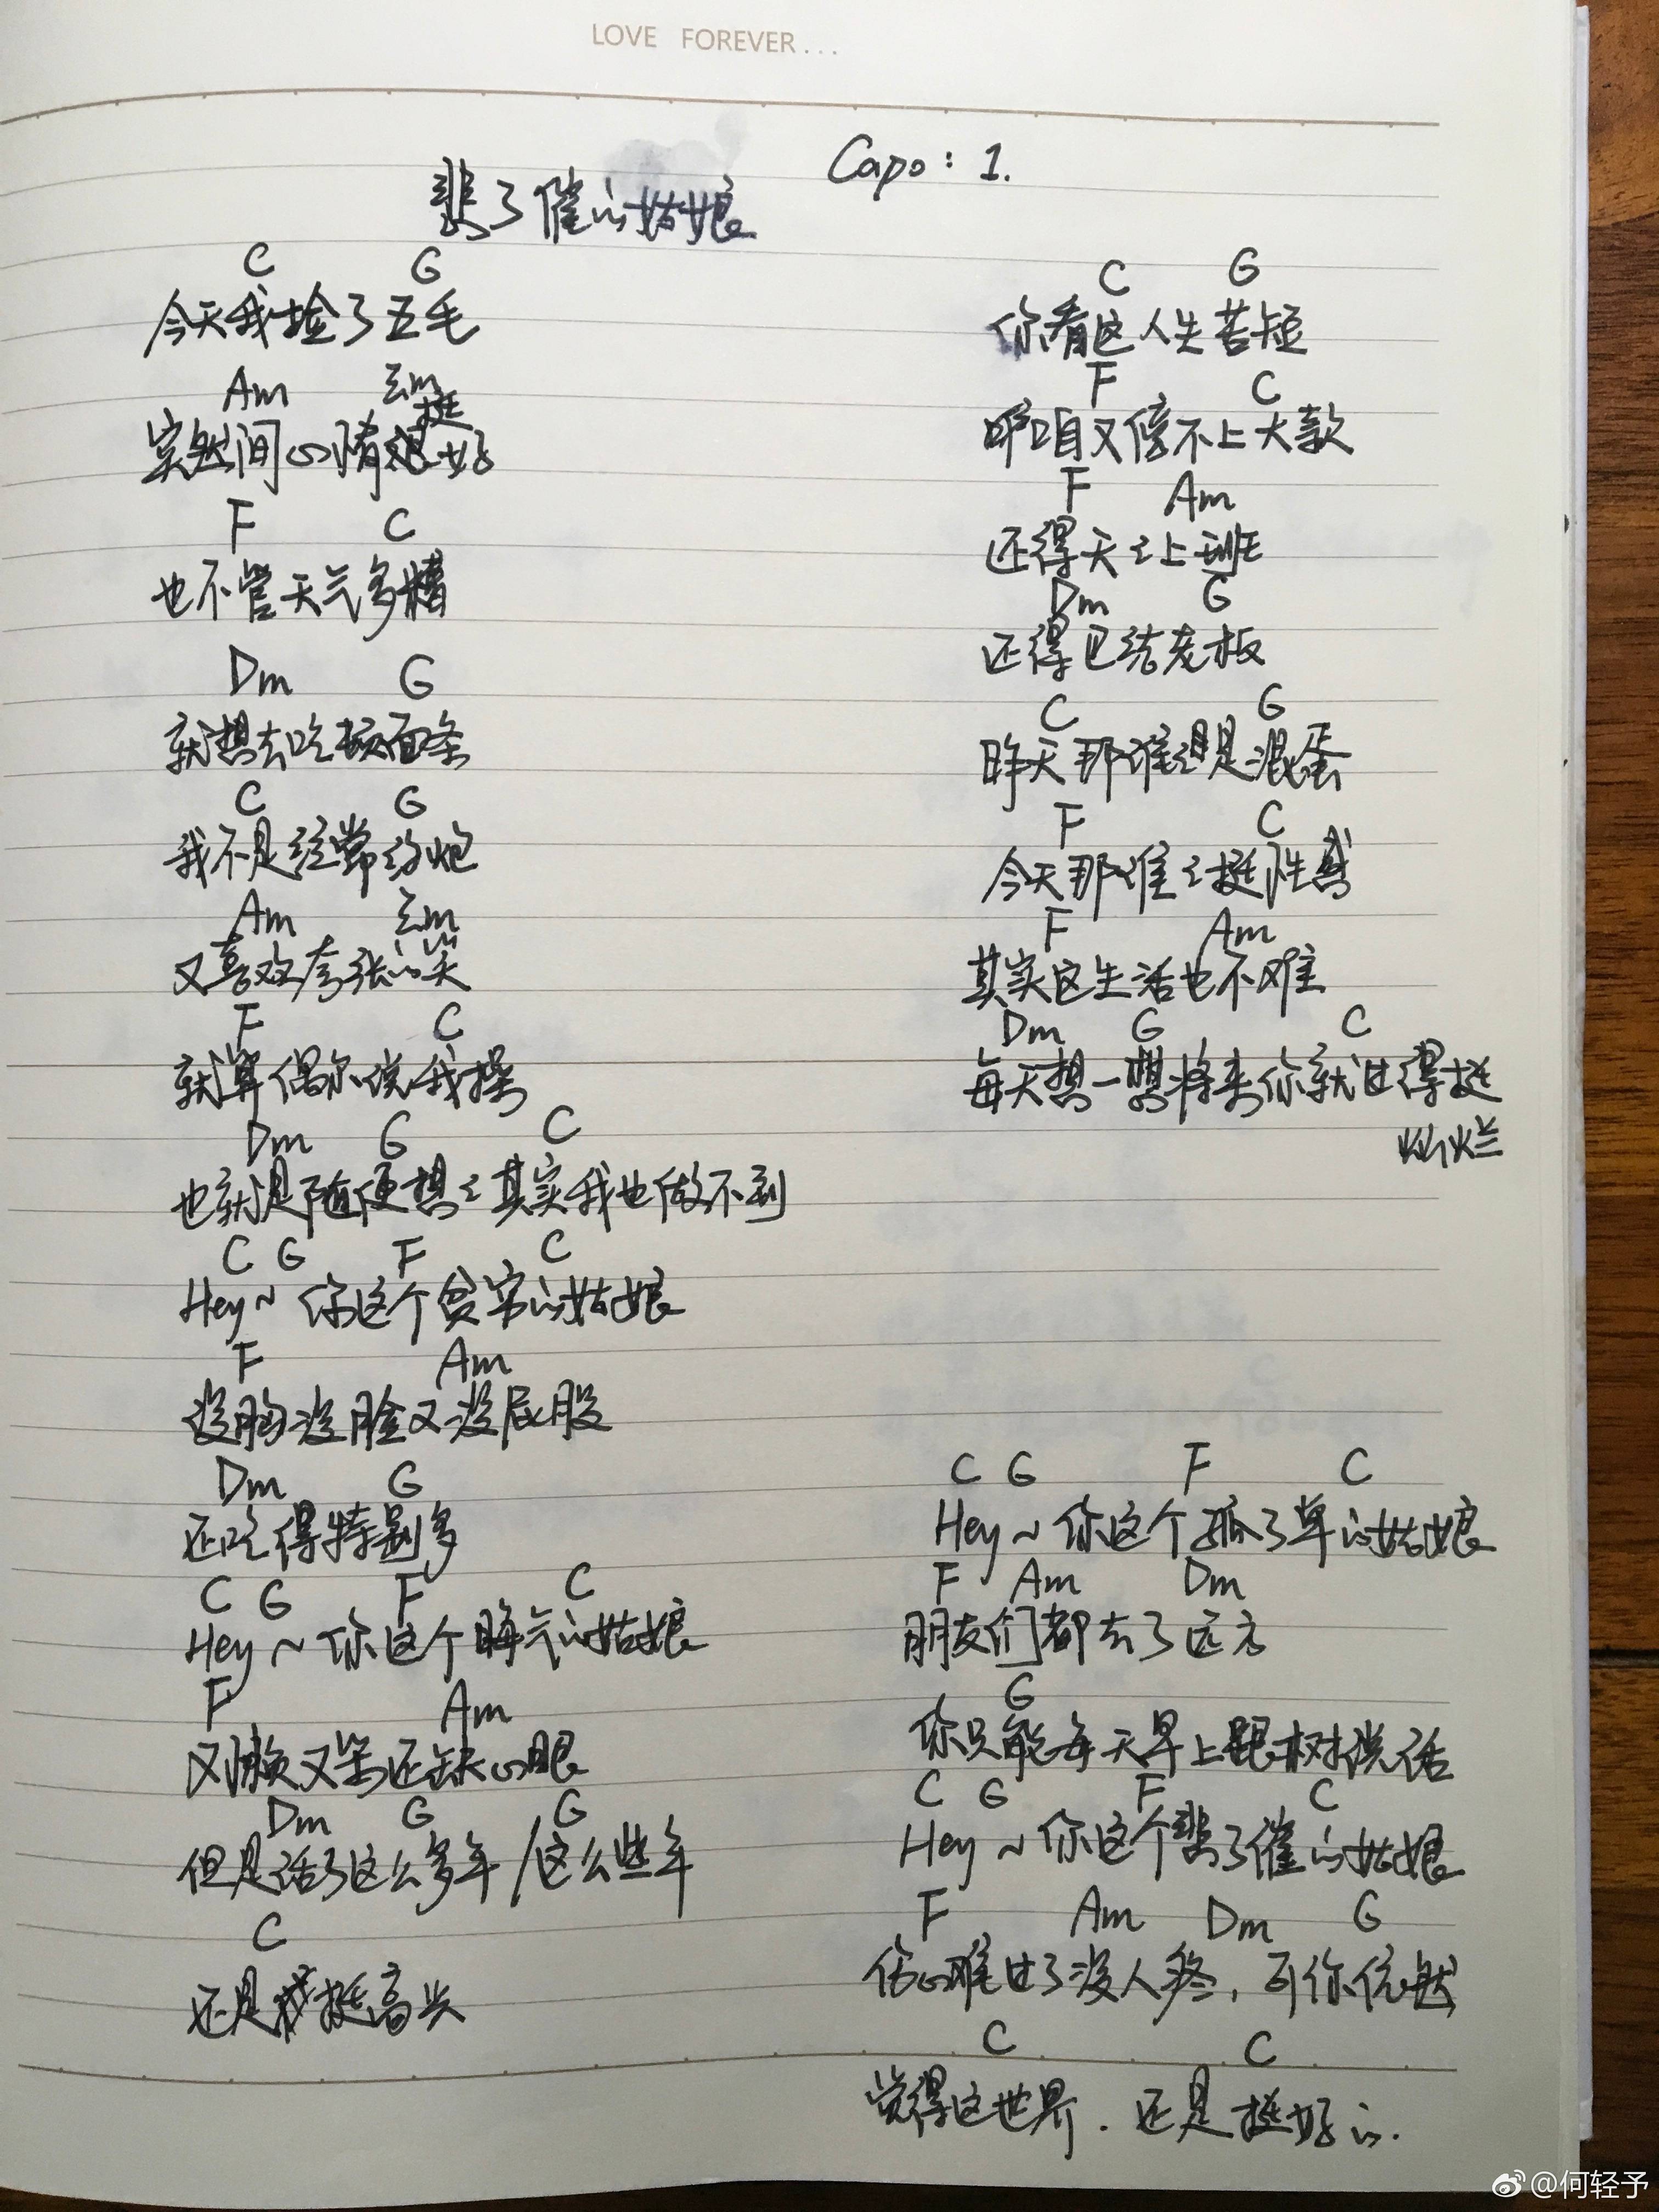 LOVE FOREVER...
Capo: 1.
悲了催的姑娘
C G
今天我捡了五毛
Am Em
挺
突然间心情很好
F C
也不管天气多糟
Dm G
就想去吃顿面条
C G
我不是经常约炮
Am Em
又喜欢夸张的笑
F C
就算偶尔说我操
Dm G C
也就是随便想々其实我也做不到
C G F C
Hey~ 你这个贫穷的姑娘
F Am
没胸没脸又没屁股
Dm G
还吃得特别多
C G F C
Hey~ 你这个晦气的姑娘
F Am
又懒又笨还缺心眼
Dm G G
但是活了这么多年/这么些年
C
还是挺高兴
C G
你看这人生苦短
F C
咱又傍不上大款
F Am
还得天々上班
Dm G
还得巴结老板
C G
昨天那谁々是混蛋
F C
今天那谁々挺性感
F Am
其实这生活也不难
Dm G C
每天想一想将来你就过得挺
灿烂
C G F C
Hey~ 你这个孤了单的姑娘
F Am Dm
朋友们都去了远方
G
你只能每天早上跟树说话
C G F C
Hey~ 你这个悲了催的姑娘
F Am Dm G
伤心难过了没人疼，可你依然
C C
觉得这世界.还是挺好的.
@何轻予